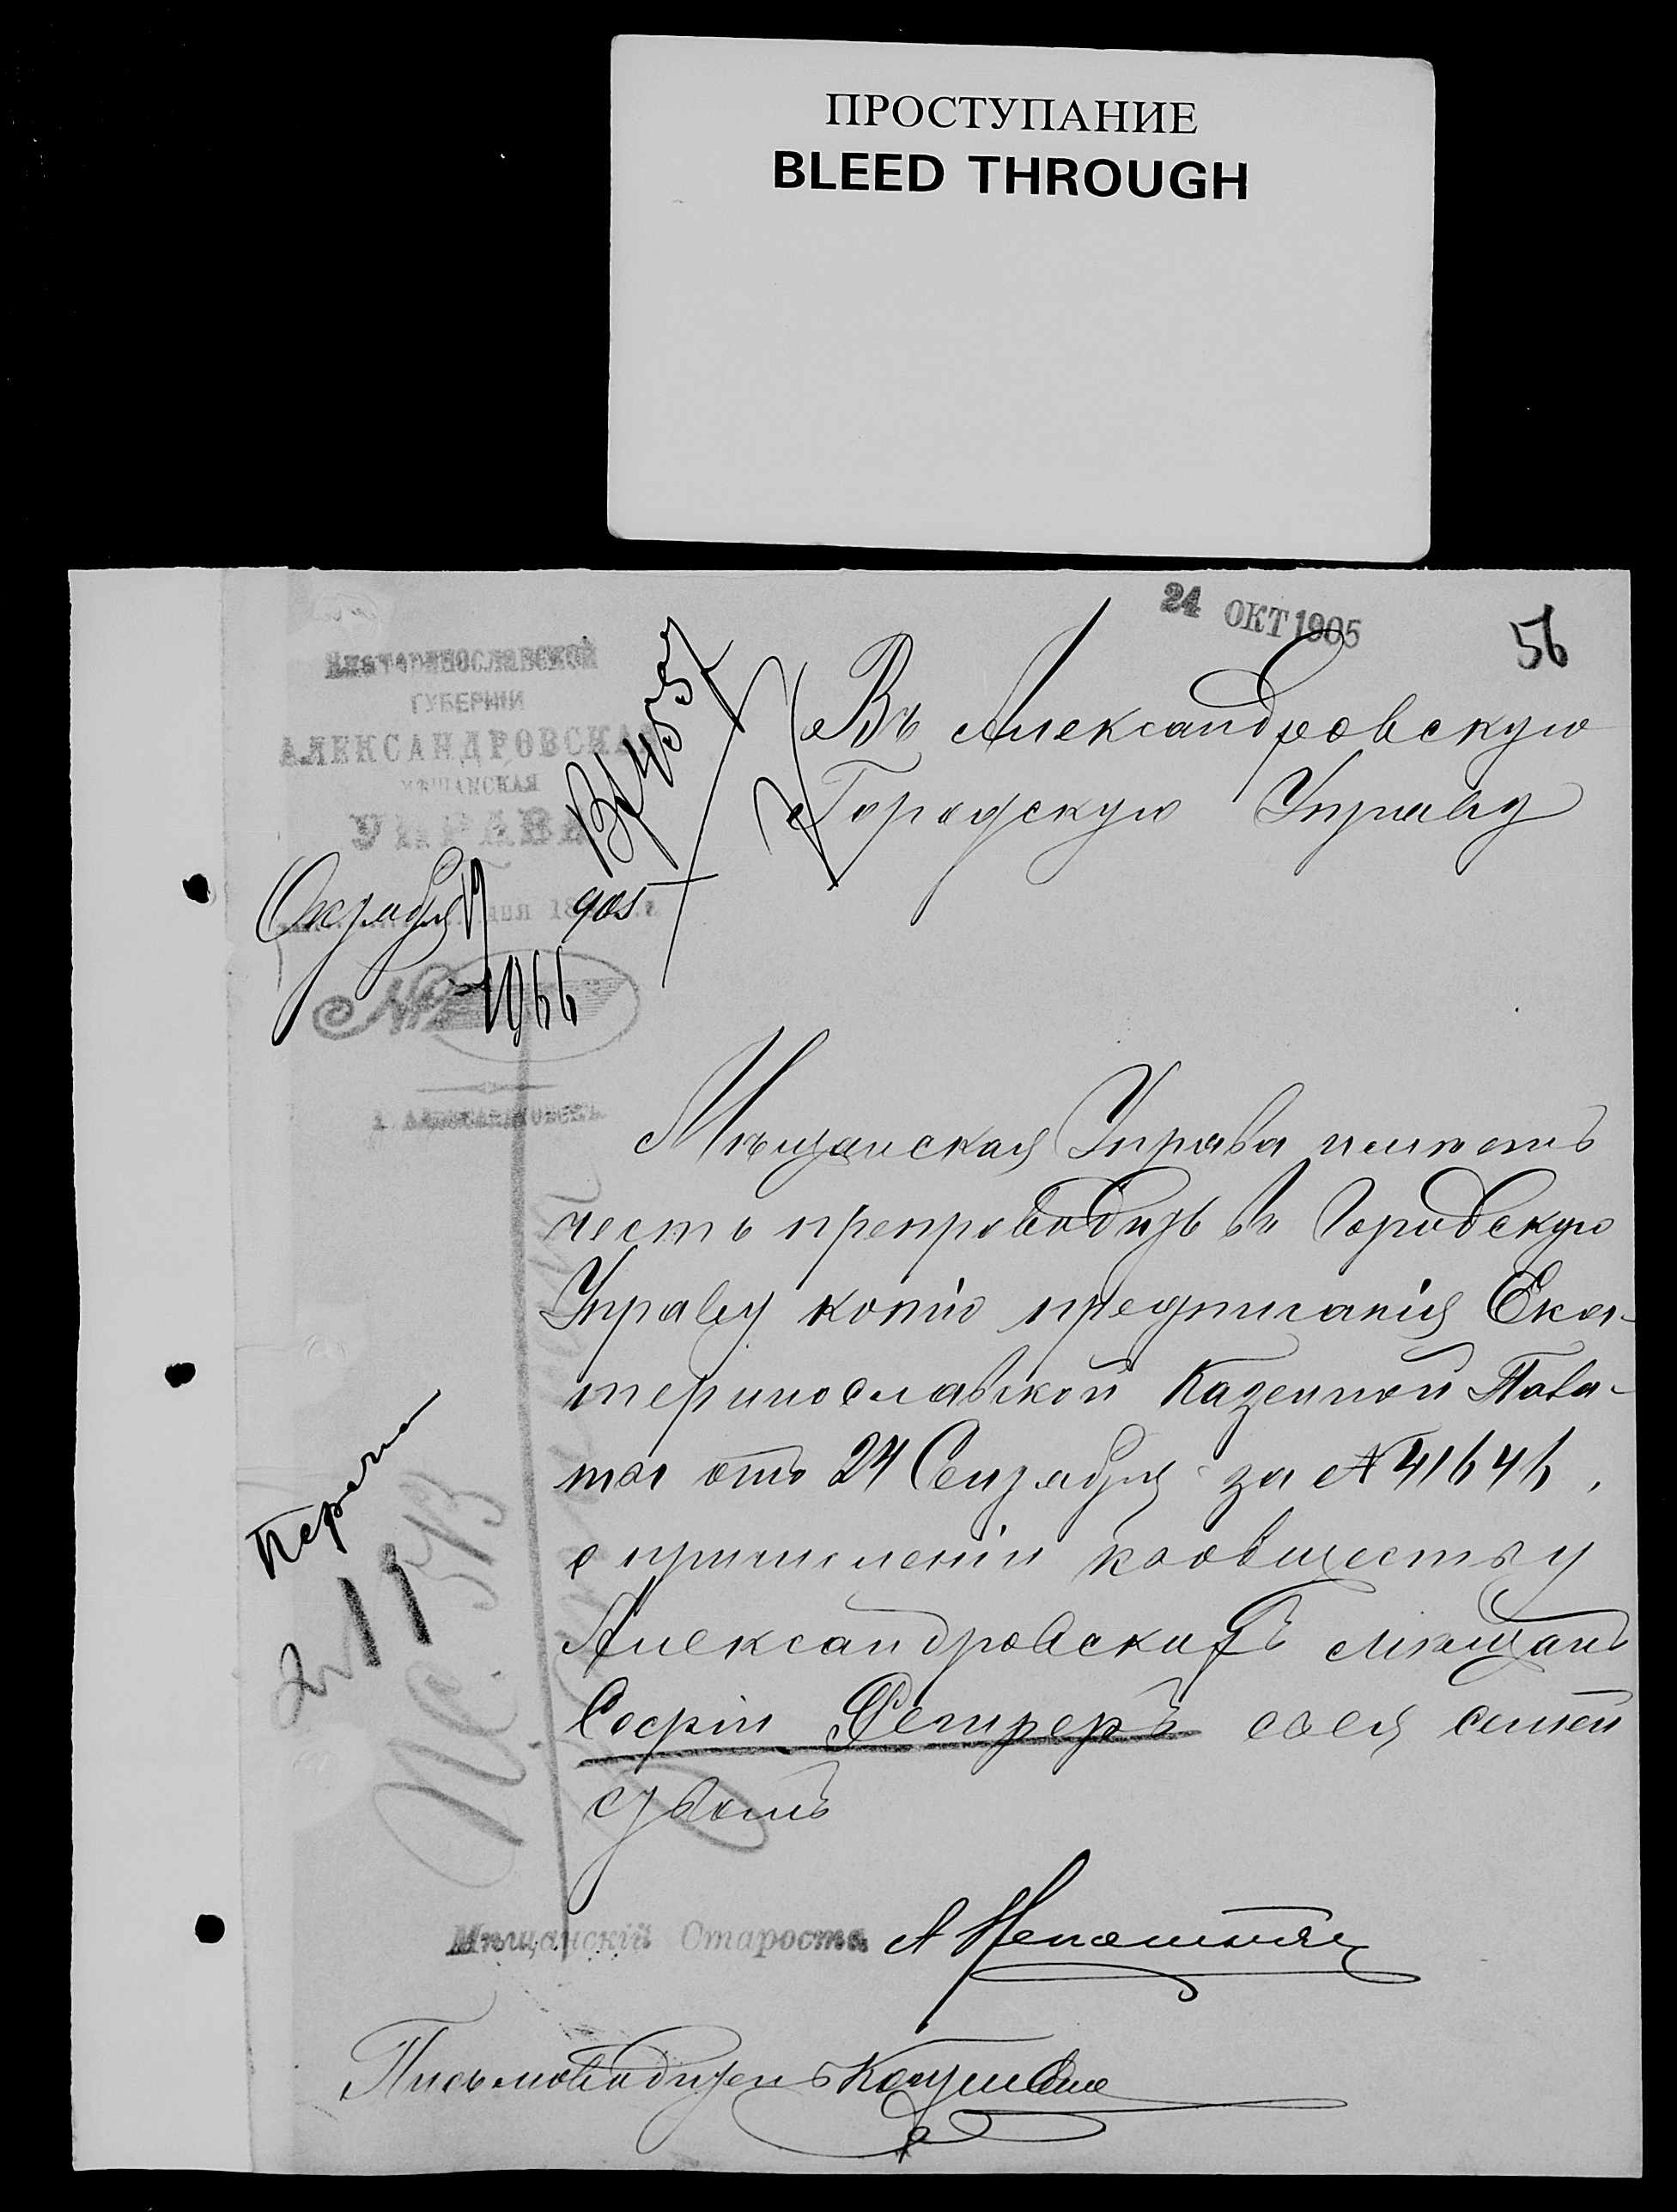 ПРОСТУПАНИЕ
BLEED THROUGH
24 ОКТ 1905
56
Екатеринославской
ГУБЕРНІИ
АЛЕКСАНДРОВСКАЯ
МѢЩАНСКАЯ
УПРАВА
Октября 905
№ 1966
г. Александровскъ
Въ Александровскую
Городскую Управу
Мѣщанская Управа имѣетъ
честь препроводить въ Городскую
Управу копію предписанія Ека-
теринославской Казенной Пала-
ты отъ 24 Сентября за № 41646,
о причисленіи къ обществу
Александровскихъ мѣщанъ
Софіи съ семей
ствомъ
Мѣщанскій Староста
Письмоводитель